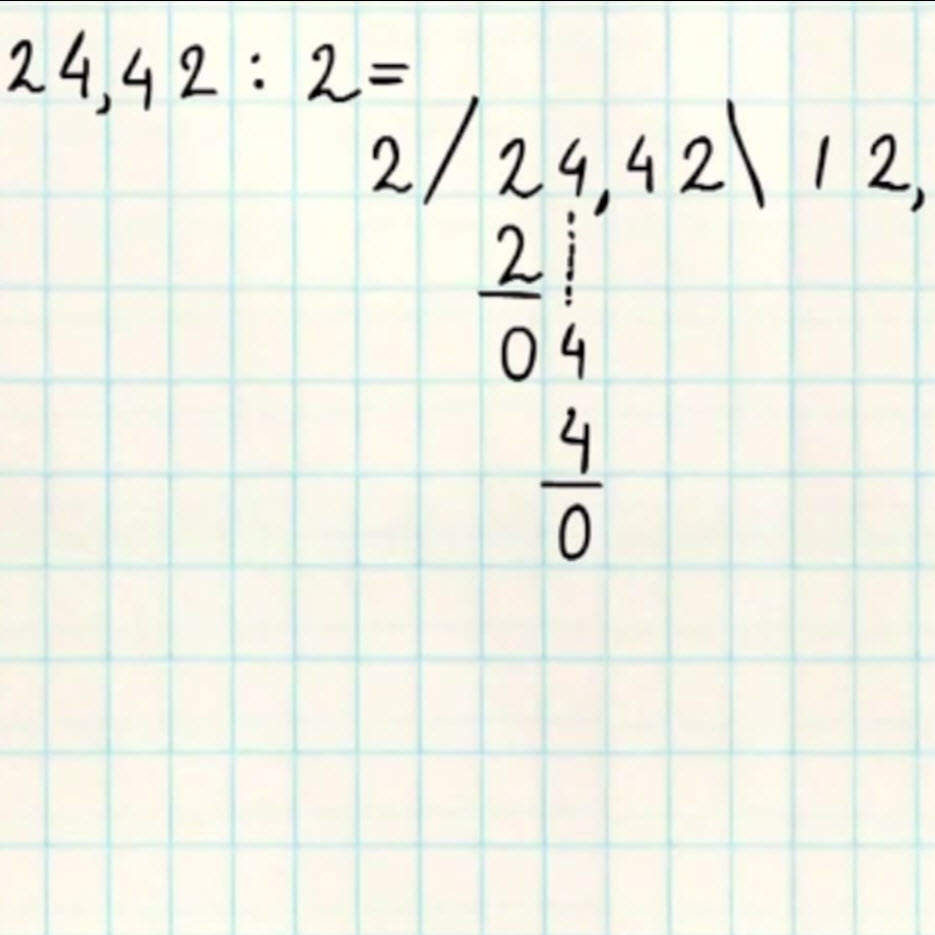 24,42 : 2=
2/24,42\ 12,
2
04
4
0